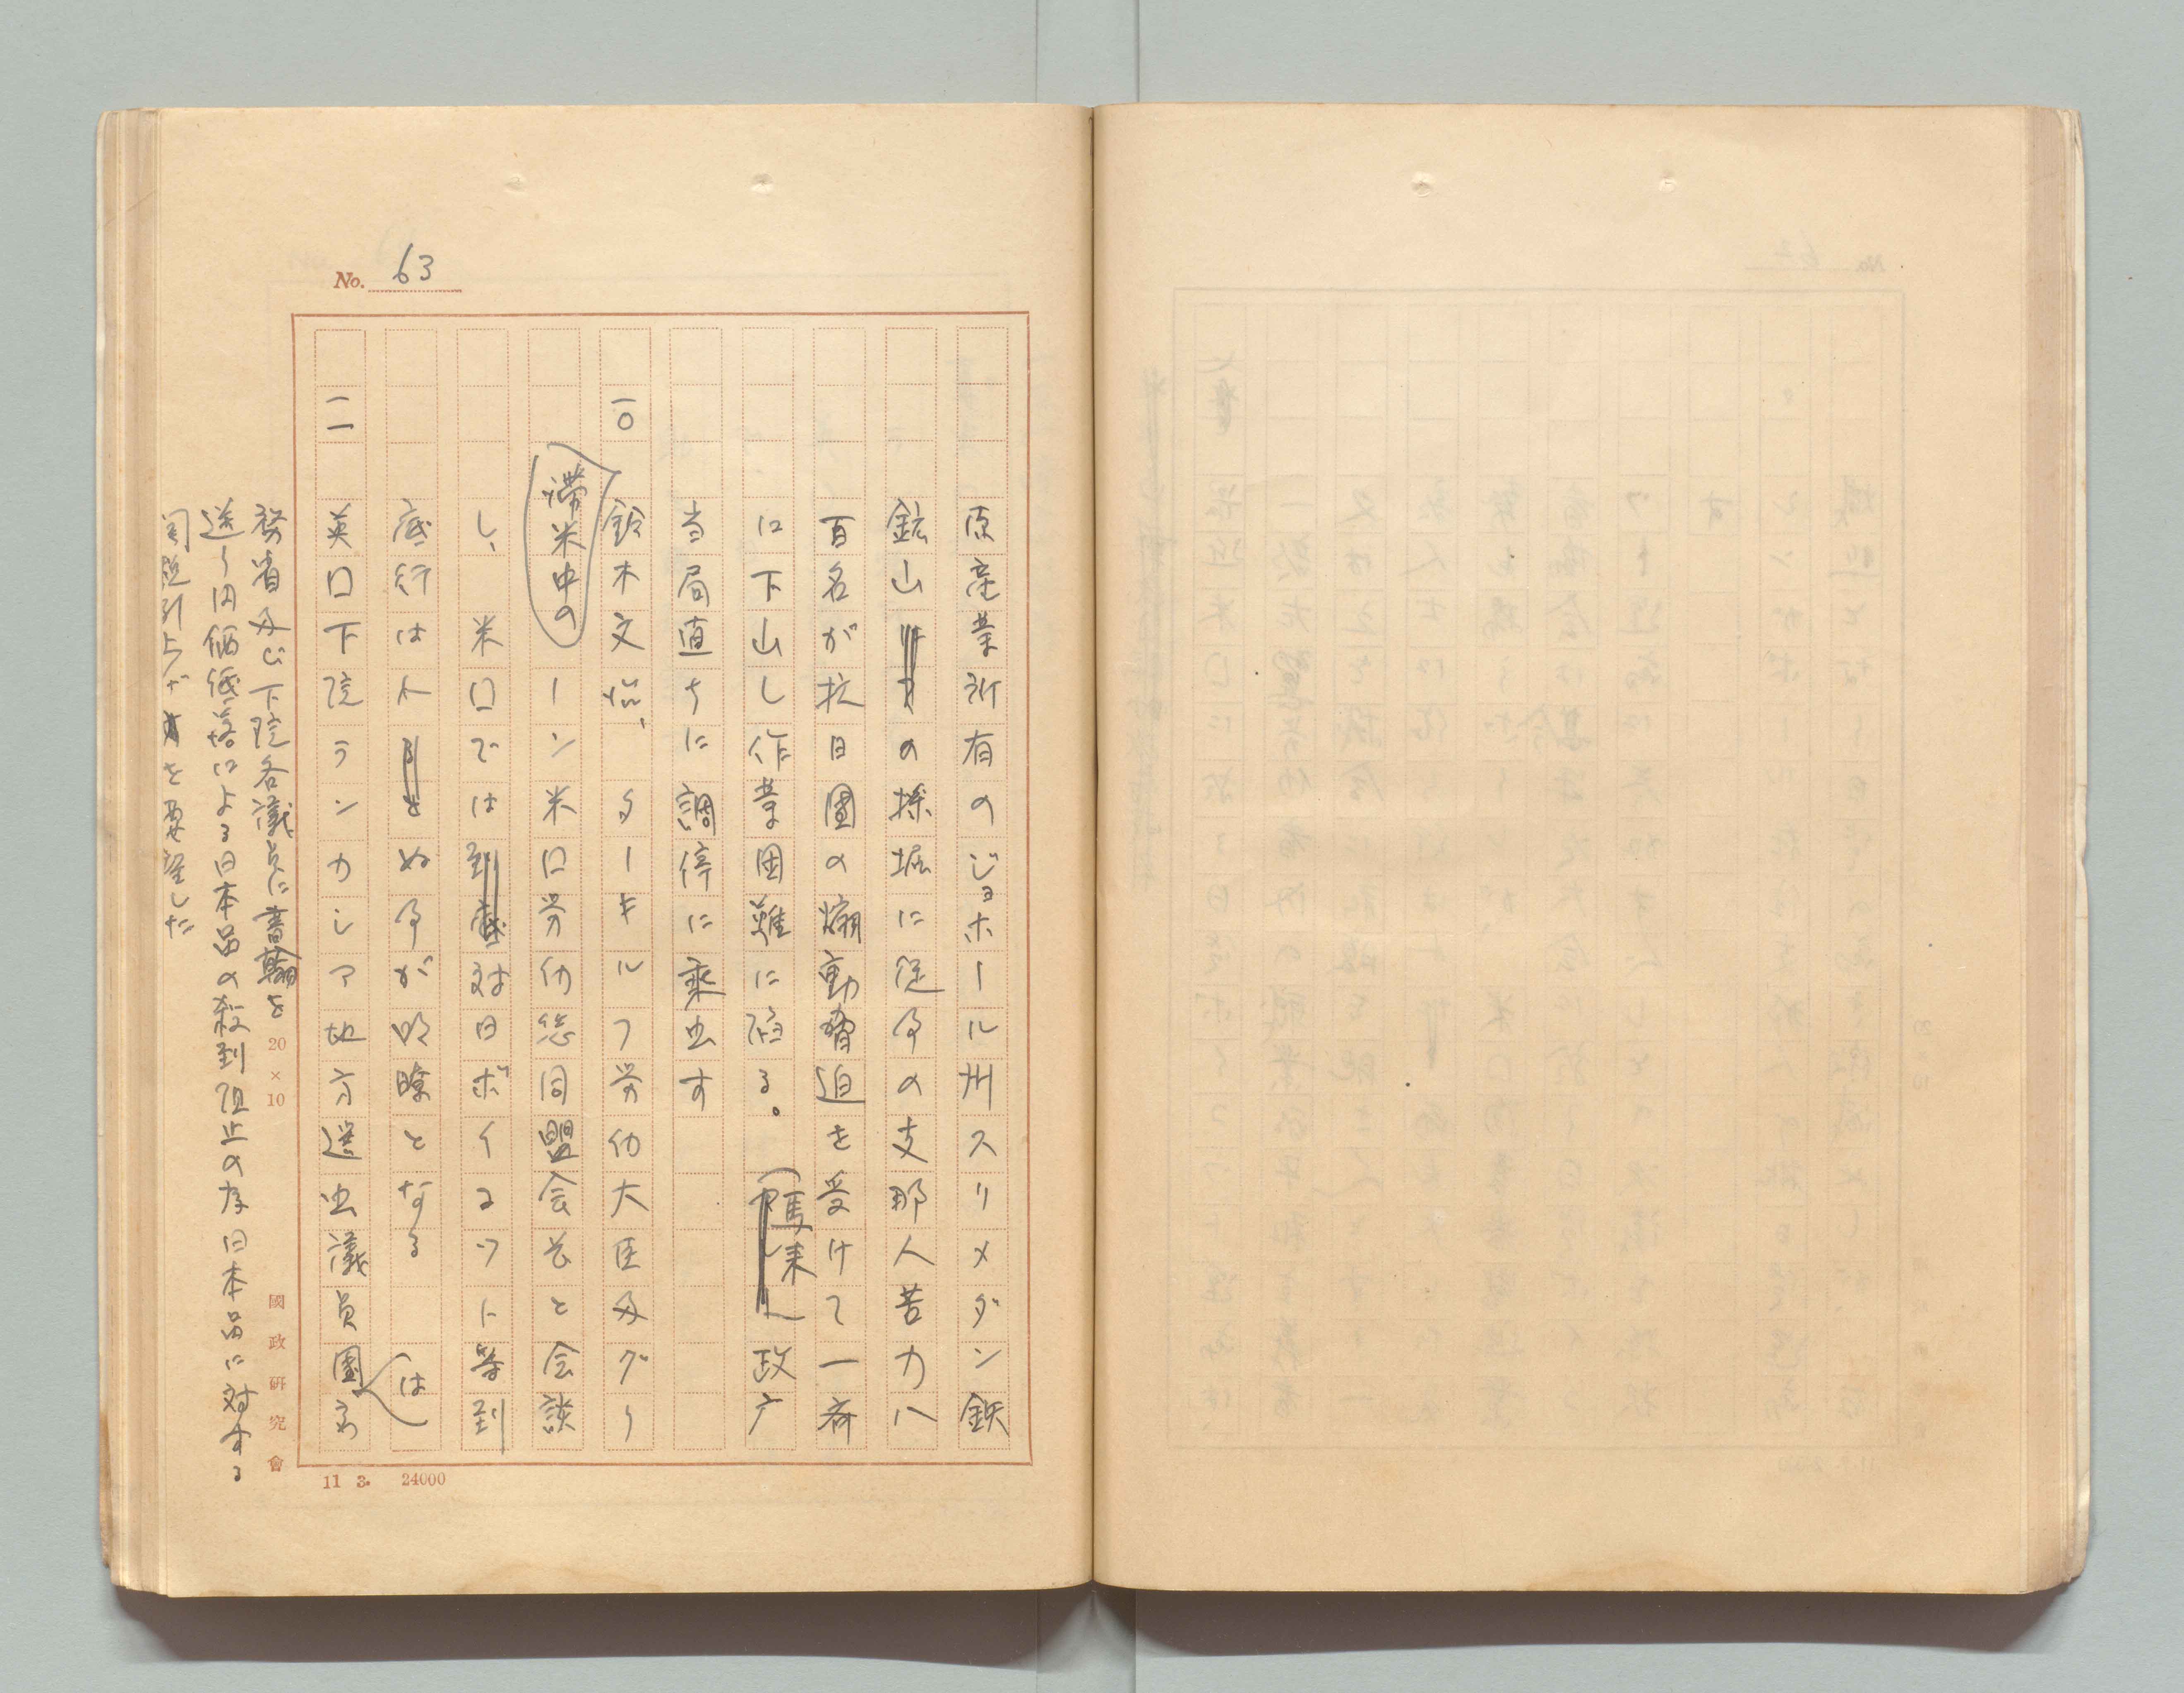 No. 63
原産業所有のジョホール州スリメダン鉄
鉱山の採堀に従事の支那人苦力八
百名が抗日團の煽動脅迫を受けて一斉
に下山し作業困難に陥る。馬来政庁
当局直ちに調停に乗出す
一〇 鈴木文治、ターキルフ労仂大臣及グリ
滞米中の
ーン米口労仂総同盟会長と会談
し、米口では対日ボイコツトは等到
底行はれぬ事が明瞭となる
一一 英口下院ランカシア地方選出議員團は
務省及び下院各議員に書翰を
送り円価低落による日本品の殺到阻止の為日本品に対する
関税引上げ方を要望した
20×10
國政研究會
11 3. 24000